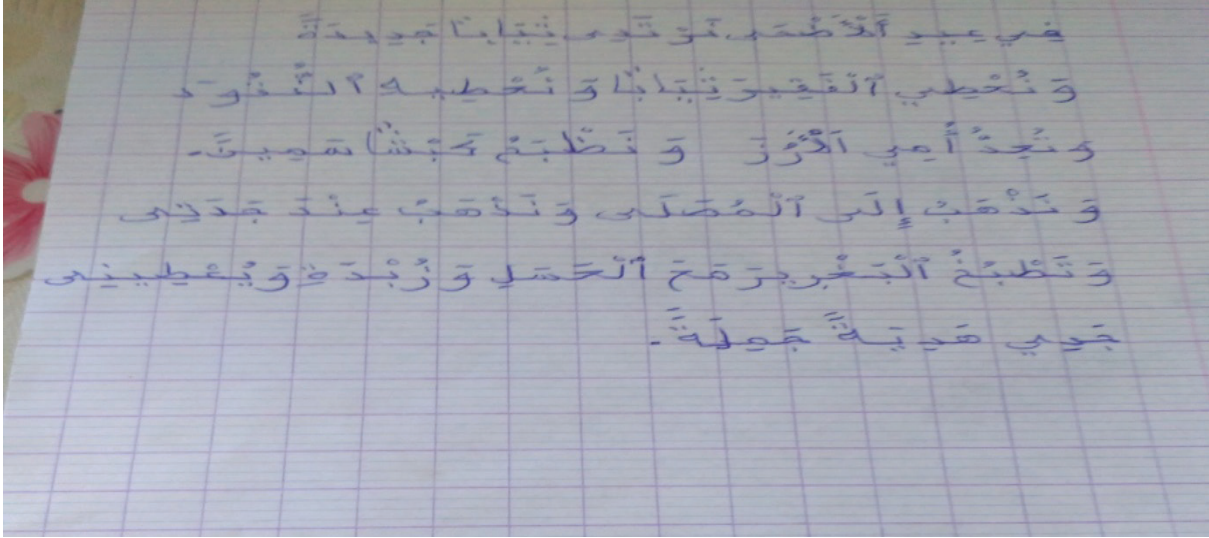 في عيد ٱلْأَضْحَى نَرْتَدِي ثِيَابًا جَدِيدَةً
وَنُعْطِي ٱلْفَقِيرَ ثِيَابًا وَنُعْطِيهِ ٱلنُّقُودَ
وَتُعِدُّ أُمِّي ٱلْأَرُزَّ وَنَذْبَحُ كَبْشًا سَمِينًا.
وَنَذْهَبُ إِلَى ٱلْمُصَلَّى وَنَذْهَبُ عِنْدَ جَدَتِي
وَتَطْبُخُ ٱلْبَغْرِيرَ مَعَ ٱلْعَسَلِ وَزُبْدَةِ وَيُعْطِينِي
جَدِي هَدِيَةً جَمِلَةً.